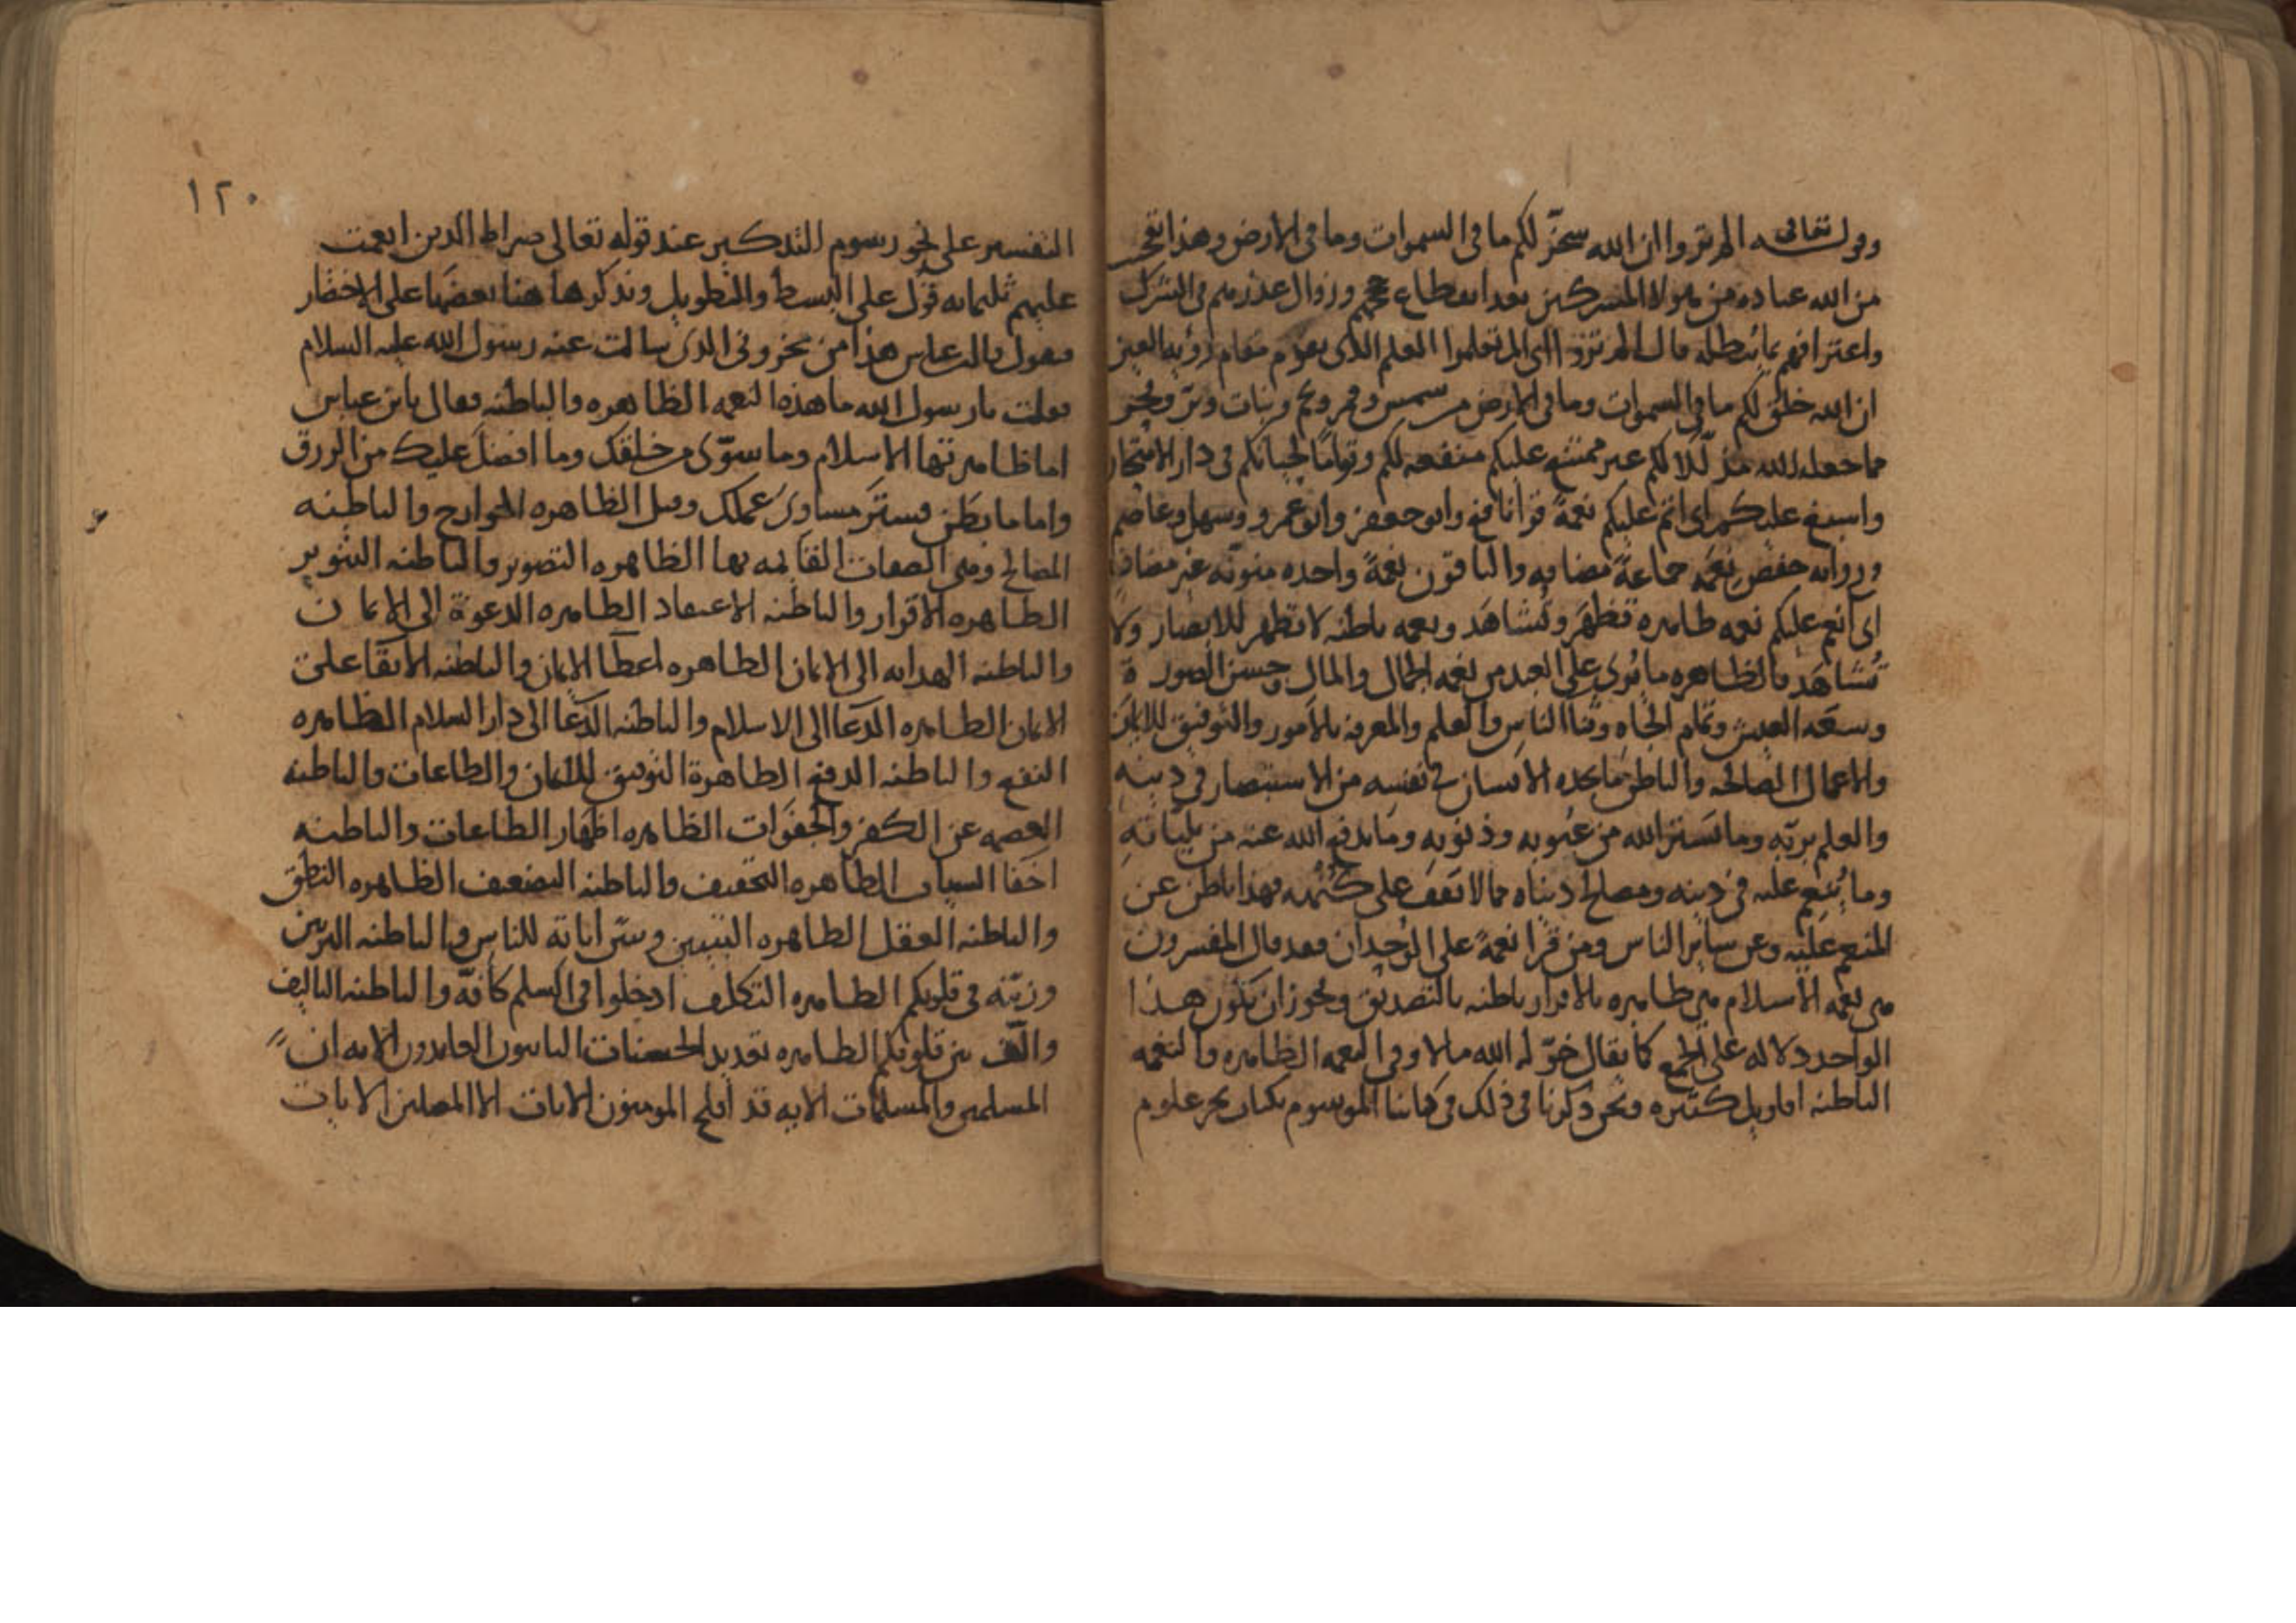 وقوله تعالى الم تروا ان الله سخر لكم ما في السموات وما في الارض وهذا تعجيب
من الله عباده من هولا المشركين بعد انقطاع حججهم وزوال عذرهم في الشرك
واعترافهم بما يبطله قال الم تروا اي الم تعلموا العلم الذي يقوم مقام رؤية العين
ان الله خلق لكم ما في السموات وما في الارض من شمس وقمر ونجم ونبات وبر وبحر
مما جعله الله مذللا لكم غير ممتنع عليكم منفعه لكم وقواما لحياتكم في دار الامتحان
واسبغ عليكم اي اتم عليكم نعمه قرا نافع وابو جعفر وابو عمرو وسهل وعاصم
وروايه حفص نعمه جماعة مضافه والباقون نعمة واحده منونه غير مضاف
اي انعم عليكم نعمه ظاهره تظهر وتشاهد ونعمه باطنه لا تظهر للابصار ولا
تشاهد فالظاهره ما يرى على العبد من نعمه الجمال والمال وحسن الصورة
وسعه العيش وتمام الجاه وثنا الناس والعلم والمعرفه بالامور والتوفيق للايمان
والاعمال الصالحه والباطن ما يجده الانسان في نفسه من الاستبصار في دينه
والعلم بربه وما يستر الله من عيوبه وذنوبه وما يدفع الله عنه من بلياته
وما ينعم عليه في دينه ومصالح دنياه مما لا يقف على كنهه فهذا باطن عن
المنعم عليه وعن ساير الناس ومن قرا نعمة على الوحدان فقد قال المفسرون
هي نعمه الاسلام هي ظاهره بالاقرار باطنه بالتصديق ويجوز ان يكون هذا
الواحد دلاله على الجمع كما يقال خول له الله مالا وفي النعمه الظاهره والنعمه
الباطنه اقاويل كثيره ونحن ذكرنا في ذلك في كتابنا الموسوم بكتاب بحر علوم
١٢٠
التفسير على نحو رسوم التذكير عند قوله تعالى صراط الذين انعمت
عليهم ثلثمايه قول على البسط والتطويل ونذكر هاهنا بعضها على الاختصار
فنقول قال ابن عباس هذا من مخزوني الذي سالت عنه رسول الله عليه السلام
فقلت يا رسول الله ما هذه النعمه الظاهره والباطنه فقال يا بن عباس
اما ظاهرتها الاسلام وما سوى من خلقك وما افضل عليك من الرزق
واما ما بطن فستر مساوئ عملك وقيل الظاهره الجوارح والباطنه
المصالح وهي الصفات القايمه بها الظاهره التصوير والباطنه التنوير
الظاهره الاقرار والباطنه الاعتقاد الظاهره الدعوة الى الايمان
والباطنه الهدايه الى الايمان الظاهره اعطا الايمان والباطنه الابقا على
الايمان الظاهره الدعا الى الاسلام والباطنه الدعا الى دار السلام الظاهره
النفع والباطنه الدفع الظاهرة التوفيق للايمان والطاعات والباطنه
العصمه عن الكفر والجفوات الظاهره اظهار الطاعات والباطنه
اخفا السيات الظاهره التخفيف والباطنه التضعيف الظاهره النطق
والباطنه العقل الظاهره التبيين ويبين اياته للناس والباطنه التزيين
وزينه في قلوبكم الظاهره التكليف ادخلوا في السلم كافه والباطنه التاليف
والف بين قلوبكم الظاهره تعديد الحسنات التايبون العابدون الايه ان
المسلمين والمسلمات الايه قد افلح المومنون الايات الا المصلين الايات